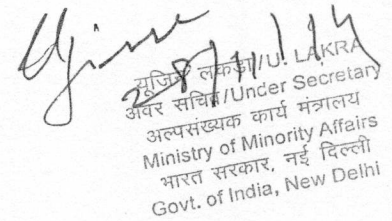 28/11/14
यूजिन लकड़ा/U. LAKRA
अवर सचिव/Under Secretary
अल्पसंख्यक कार्य मंत्रालय
Ministry of Minority Affairs
भारत सरकार, नई दिल्ली
Govt. of India, New Delhi